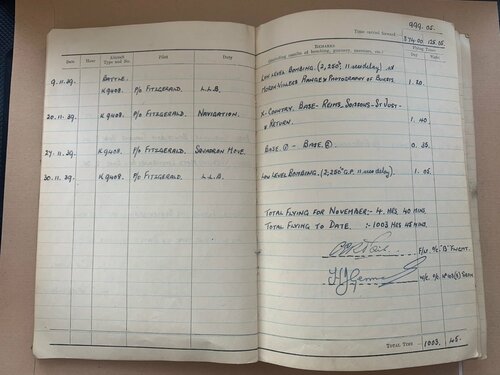 Date Hour Aircraft Type and No. Pilot Duty
9.11.39. BATTLE. K9408. P/O FITZGERALD. L.L.B.
20.11.39. K9408. P/O FITZGERALD. NAVIGATION.
27.11.39. K9408. P/O FITZGERALD. SQUADRON MOVE.
30.11.39. K9408. P/O FITZGERALD. L.L.B.
999.05.
Time carried forward :—
874.00 125.05.
REMARKS
(including results of bombing, gunnery, exercises, etc.)
Flying Times
Day Night
LOW LEVEL BOMBING. (2, 250° 11 sec delay) AT
RANGE & PHOTOGRAPHY OF BURSTS. 1. 20.
X-COUNTRY. BASE- REIMS. SOISSONS- ST JUST-
& RETURN. 1. 40.
BASE ① - BASE ②. 0. 35.
LOW LEVEL BOMBING. (2, 250° G.P. 11 sec delay). 1. 05.
TOTAL FLYING FOR NOVEMBER:- 4. HRS 40 MINS.
TOTAL FLYING TO DATE. :- 1003 HRS 45 MINS.
F/Lt. O/C "B" FLIGHT.
W/C. O/C
TOTAL TIME ... 1003. 45.